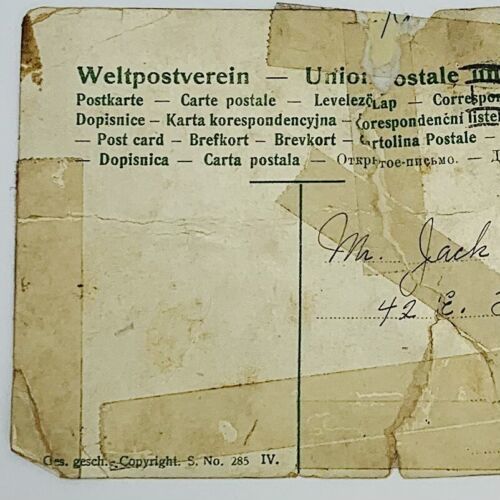 Weltpostverein — Union Postale
Postkarte — Carte postale — Levelező-Lap — Correspon
Dopisnice — Karta korespondencyjna — Korespondenční listek
— Post card — Brefkort — Brevkort — Cartolina Postale —
— Dopisnica — Carta postala — Открытое-письмо. — Д
Mr. Jack
42 E.
Ges. gesch. - Copyright. S. No. 285 IV.